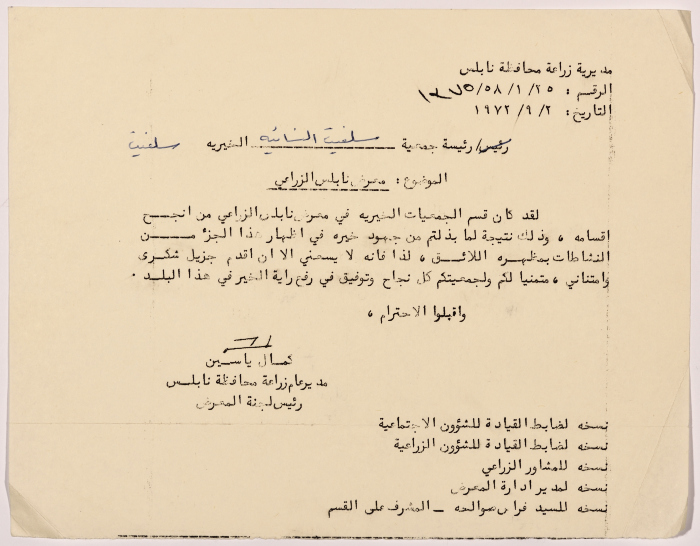 مديرية زراعة محافظة نابلس
الرقم : ٢٥/ ١/ ٥٨/ ١٣٧٥
التاريخ: ٢/ ٩/ ١٩٧٢
رئيس/ رئيسة جمعية سلفيت النسائيه الخيريه سلفيت
الموضوع : معرض نابلس الزراعي
لقد كان قسم الجمعيات الخيريه في معرض نابلس الزراعي من انجح
اقسامه ، وذلك نتيجة لما بذلتم من جهود خيره في اظهار هذا الجزء من
النشاطات بمظهره اللائق ، لذا فانه لا يسعني الا ان اقدم جزيل شكرى
وامتناني ، متمنيا لكم ولجمعيتكم كل نجاح وتوفيق في رفع راية الخير في هذا البلد .
واقبلوا الاحترام ،
كمال ياسين
مدير عام زراعة محافظة نابلس
رئيس لجنة المعرض
نسخه لضابط القيادة للشؤون الاجتماعية
نسخه لضابط القيادة للشؤون الزراعية
نسخه للمشاور الزراعي
نسخه لمدير ادارة المعرض
نسخه للسيد فراس صوالحه - المشرف على القسم